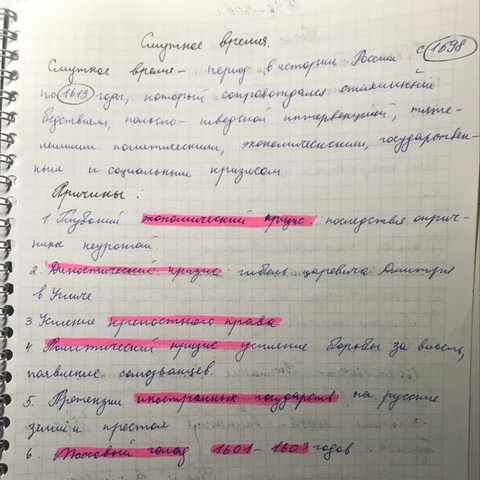 Смутное время.
Смутное время – период в истории России с 1698
по 1613 годы, который сопровождался стихийный
бедствием, польско-шведской интервенцией, тяже-
лейшим политическим, экономическим, государствен-
ным и социальным кризисом
Причины:
1. Глубокий экономический кризис: последствия оприч-
нины неурожай
2. Династический кризис: гибель царевича Дмитрия
в Угличе
3. Усиление крепостного права
4. Политический кризис усиление борьбы за власть,
появление самозванцев.
5. Претензии иностранных государств на русские
земли и престол
6. Массовый голод 1601-1603 годов